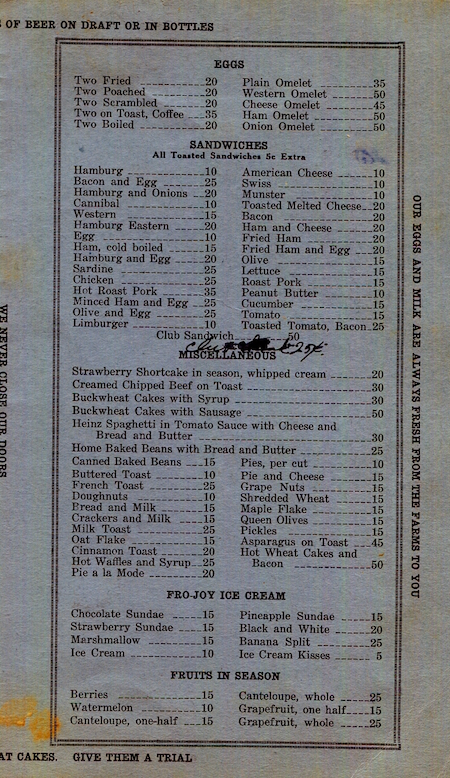 OF BEER ON DRAFT OR IN BOTTLES
EGGS
Two Fried 20
Two Poached 20
Two Scrambled 20
Two on Toast, Coffee 35
Two Boiled 20
Plain Omelet 35
Western Omelet 50
Cheese Omelet 45
Ham Omelet 50
Onion Omelet 50
SANDWICHES
All Toasted Sandwiches 5c Extra
Hamburg 10
Bacon and Egg 25
Hamburg and Onions 20
Cannibal 10
Western 15
Hamburg Eastern 20
Egg 10
Ham, cold boiled 15
Hamburg and Egg 20
Sardine 25
Chicken 25
Hot Roast Pork 35
Minced Ham and Egg 25
Olive and Egg 25
Limburger 10
American Cheese 10
Swiss 10
Munster 10
Toasted Melted Cheese 20
Bacon 20
Ham and Cheese 20
Fried Ham 20
Fried Ham and Egg 20
Olive 15
Lettuce 15
Roast Pork 15
Peanut Butter 10
Cucumber 15
Tomato 15
Toasted Tomato, Bacon 25
Club Sandwich 50
25¢
MISCELLANEOUS
Strawberry Shortcake in season, whipped cream 20
Creamed Chipped Beef on Toast 30
Buckwheat Cakes with Syrup 30
Buckwheat Cakes with Sausage 50
Heinz Spaghetti in Tomato Sauce with Cheese and
Bread and Butter 30
Home Baked Beans with Bread and Butter 25
Canned Baked Beans 15
Buttered Toast 10
French Toast 25
Doughnuts 10
Bread and Milk 15
Crackers and Milk 15
Milk Toast 25
Oat Flake 15
Cinnamon Toast 20
Hot Waffles and Syrup 25
Pie a la Mode 20
Pies, per cut 10
Pie and Cheese 15
Grape Nuts 15
Shredded Wheat 15
Maple Flake 15
Queen Olives 15
Pickles 15
Asparagus on Toast 45
Hot Wheat Cakes and
Bacon 50
FRO-JOY ICE CREAM
Chocolate Sundae 15
Strawberry Sundae 15
Marshmallow 15
Ice Cream 10
Pineapple Sundae 15
Black and White 20
Banana Split 25
Ice Cream Kisses 5
FRUITS IN SEASON
Berries 15
Watermelon 10
Canteloupe, one-half 15
Canteloupe, whole 25
Grapefruit, one half 15
Grapefruit, whole 25
AT CAKES. GIVE THEM A TRIAL
OUR EGGS AND MILK ARE ALWAYS FRESH FROM THE FARMS TO YOU
WE NEVER CLOSE OUR DOORS